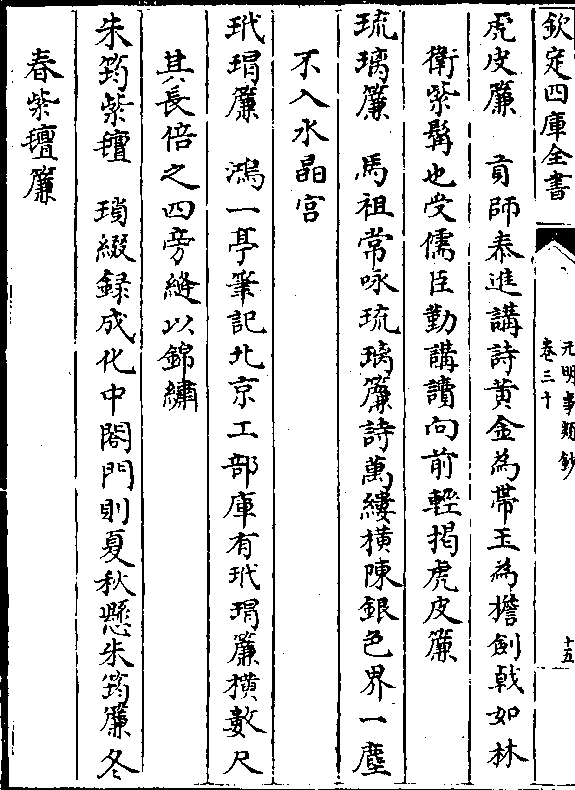 欽定四庫全書
元明事類鈔
卷三十
十五
虎皮簾　貢師泰進講詩黄金為帶玉為擔劍㦸如林
衛紫髯也受儒臣勤講讀向前輕揭虎皮簾
琉璃簾　馬祖常咏琉璃簾詩萬縷橫陳銀色界一塵
不入水晶宫
玳瑁簾　鴻一亭筆記北京工部庫有玳瑁簾橫數尺
其長倍之四旁縫以錦繡
朱筠紫氊　瑣綴録成化中閣門則夏秋懸朱筠簾冬
春紫氊簾